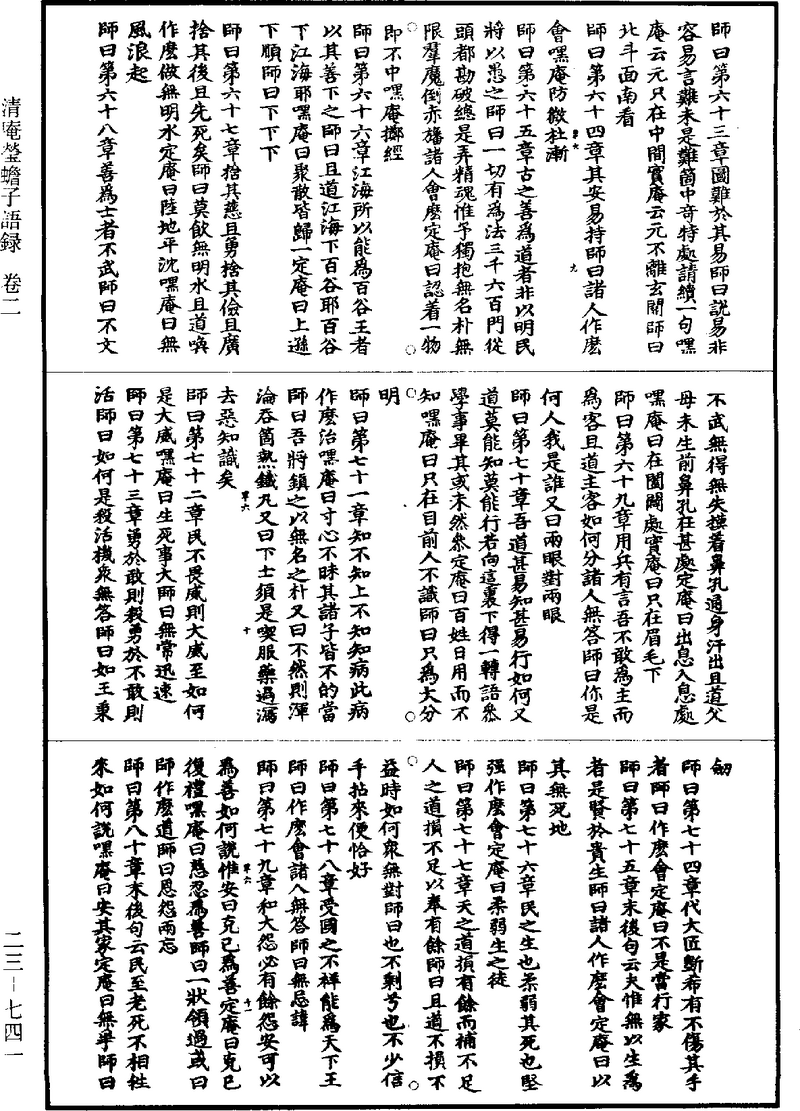 師曰第六十三章圖難於其易師曰說易非
容易言難未是難箇中奇特處請續一句嘿
庵云元只在中間實庵云元不離玄關師曰
北斗面南看
師曰第六十四章其安易持師曰諸人作麼
會嘿庵防微杜漸
師曰第六十五章古之善為道者非以明民
將以愚之師曰一切有為法三千六百門從
頭都勘破總是弄精魂惟予獨抱無名朴無
限羣魔倒赤旛諸人會麼定庵曰認着一物
即不中嘿庵擲經
師曰第六十六章江海所以能為百谷王者
以其善下之師曰且道江海下百谷耶百谷
下江海耶嘿庵曰聚散皆歸一定庵曰上遜
下順師曰下下下
師曰第六十七章捨其慈且勇捨其儉且廣
捨其後且先死矣師曰莫飲無明水且道喚
作麼做無明水定庵曰陸地平沈嘿庵曰無
風浪起
師曰第六十八章善為士者不武師曰不文
不武無得無失摸着鼻孔通身汗出且道父
母未生前鼻孔在甚處定庵曰出息入息處
嘿庵曰在闔闢處實庵曰只在眉毛下
師曰第六十九章用兵有言吾不敢為主而
為客且道主客如何分諸人無答師曰你是
何人我是誰又曰兩眼對兩眼
師曰第七十章吾道甚易知甚易行如何又
道莫能知莫能行若向這裏下得一轉語叅
學事畢其或未然叅定庵曰百姓日用而不
知嘿庵曰只在目前人不識師曰只為太分
明
師曰第七十一章知不知上不知知病此病
作麼治嘿庵曰寸心不昧其諸子皆不的當
師曰吾將鎮之以無名之朴又曰不然則渾
淪吞箇熱鐵丸又曰下士須是喫服藥過瀉
去惡知識矣
師曰第七十二章民不畏威則大威至如何
是大威嘿庵曰生死事大師曰無常迅速
師曰第七十三章勇於敢則殺勇於不敢則
活師曰如何是殺活機衆無答師曰如王秉
劒
師曰第七十四章代大匠斲希有不傷其手
者師曰作麼會定庵曰不是當行家
師曰第七十五章末後句云夫惟無以生為
者是賢於貴生師曰諸人作麼會定庵曰以
其無死地
師曰第七十六章民之生也柔弱其死也堅
强作麼會定庵曰柔弱生之徒
師曰第七十七章天之道損有餘而補不足
人之道損不足以奉有餘師曰且道不損不
益時如何衆無對師曰也不剩兮也不少信
手拈來便恰好
師曰第七十八章受國之不祥能為天下王
師曰作麼會諸人無答師曰無忌諱
師曰第七十九章和大怨必有餘怨安可以
為善如何說惟安曰克己為善定庵曰克己
復禮嘿庵曰慈忍為善師曰一狀領過或曰
師作麼道師曰恩怨兩忘
師曰第八十章末後句云民至老死不相往
來如何說嘿庵曰安其家定庵曰無爭師曰
清庵瑩蟾子語録 卷二
二三—七四一